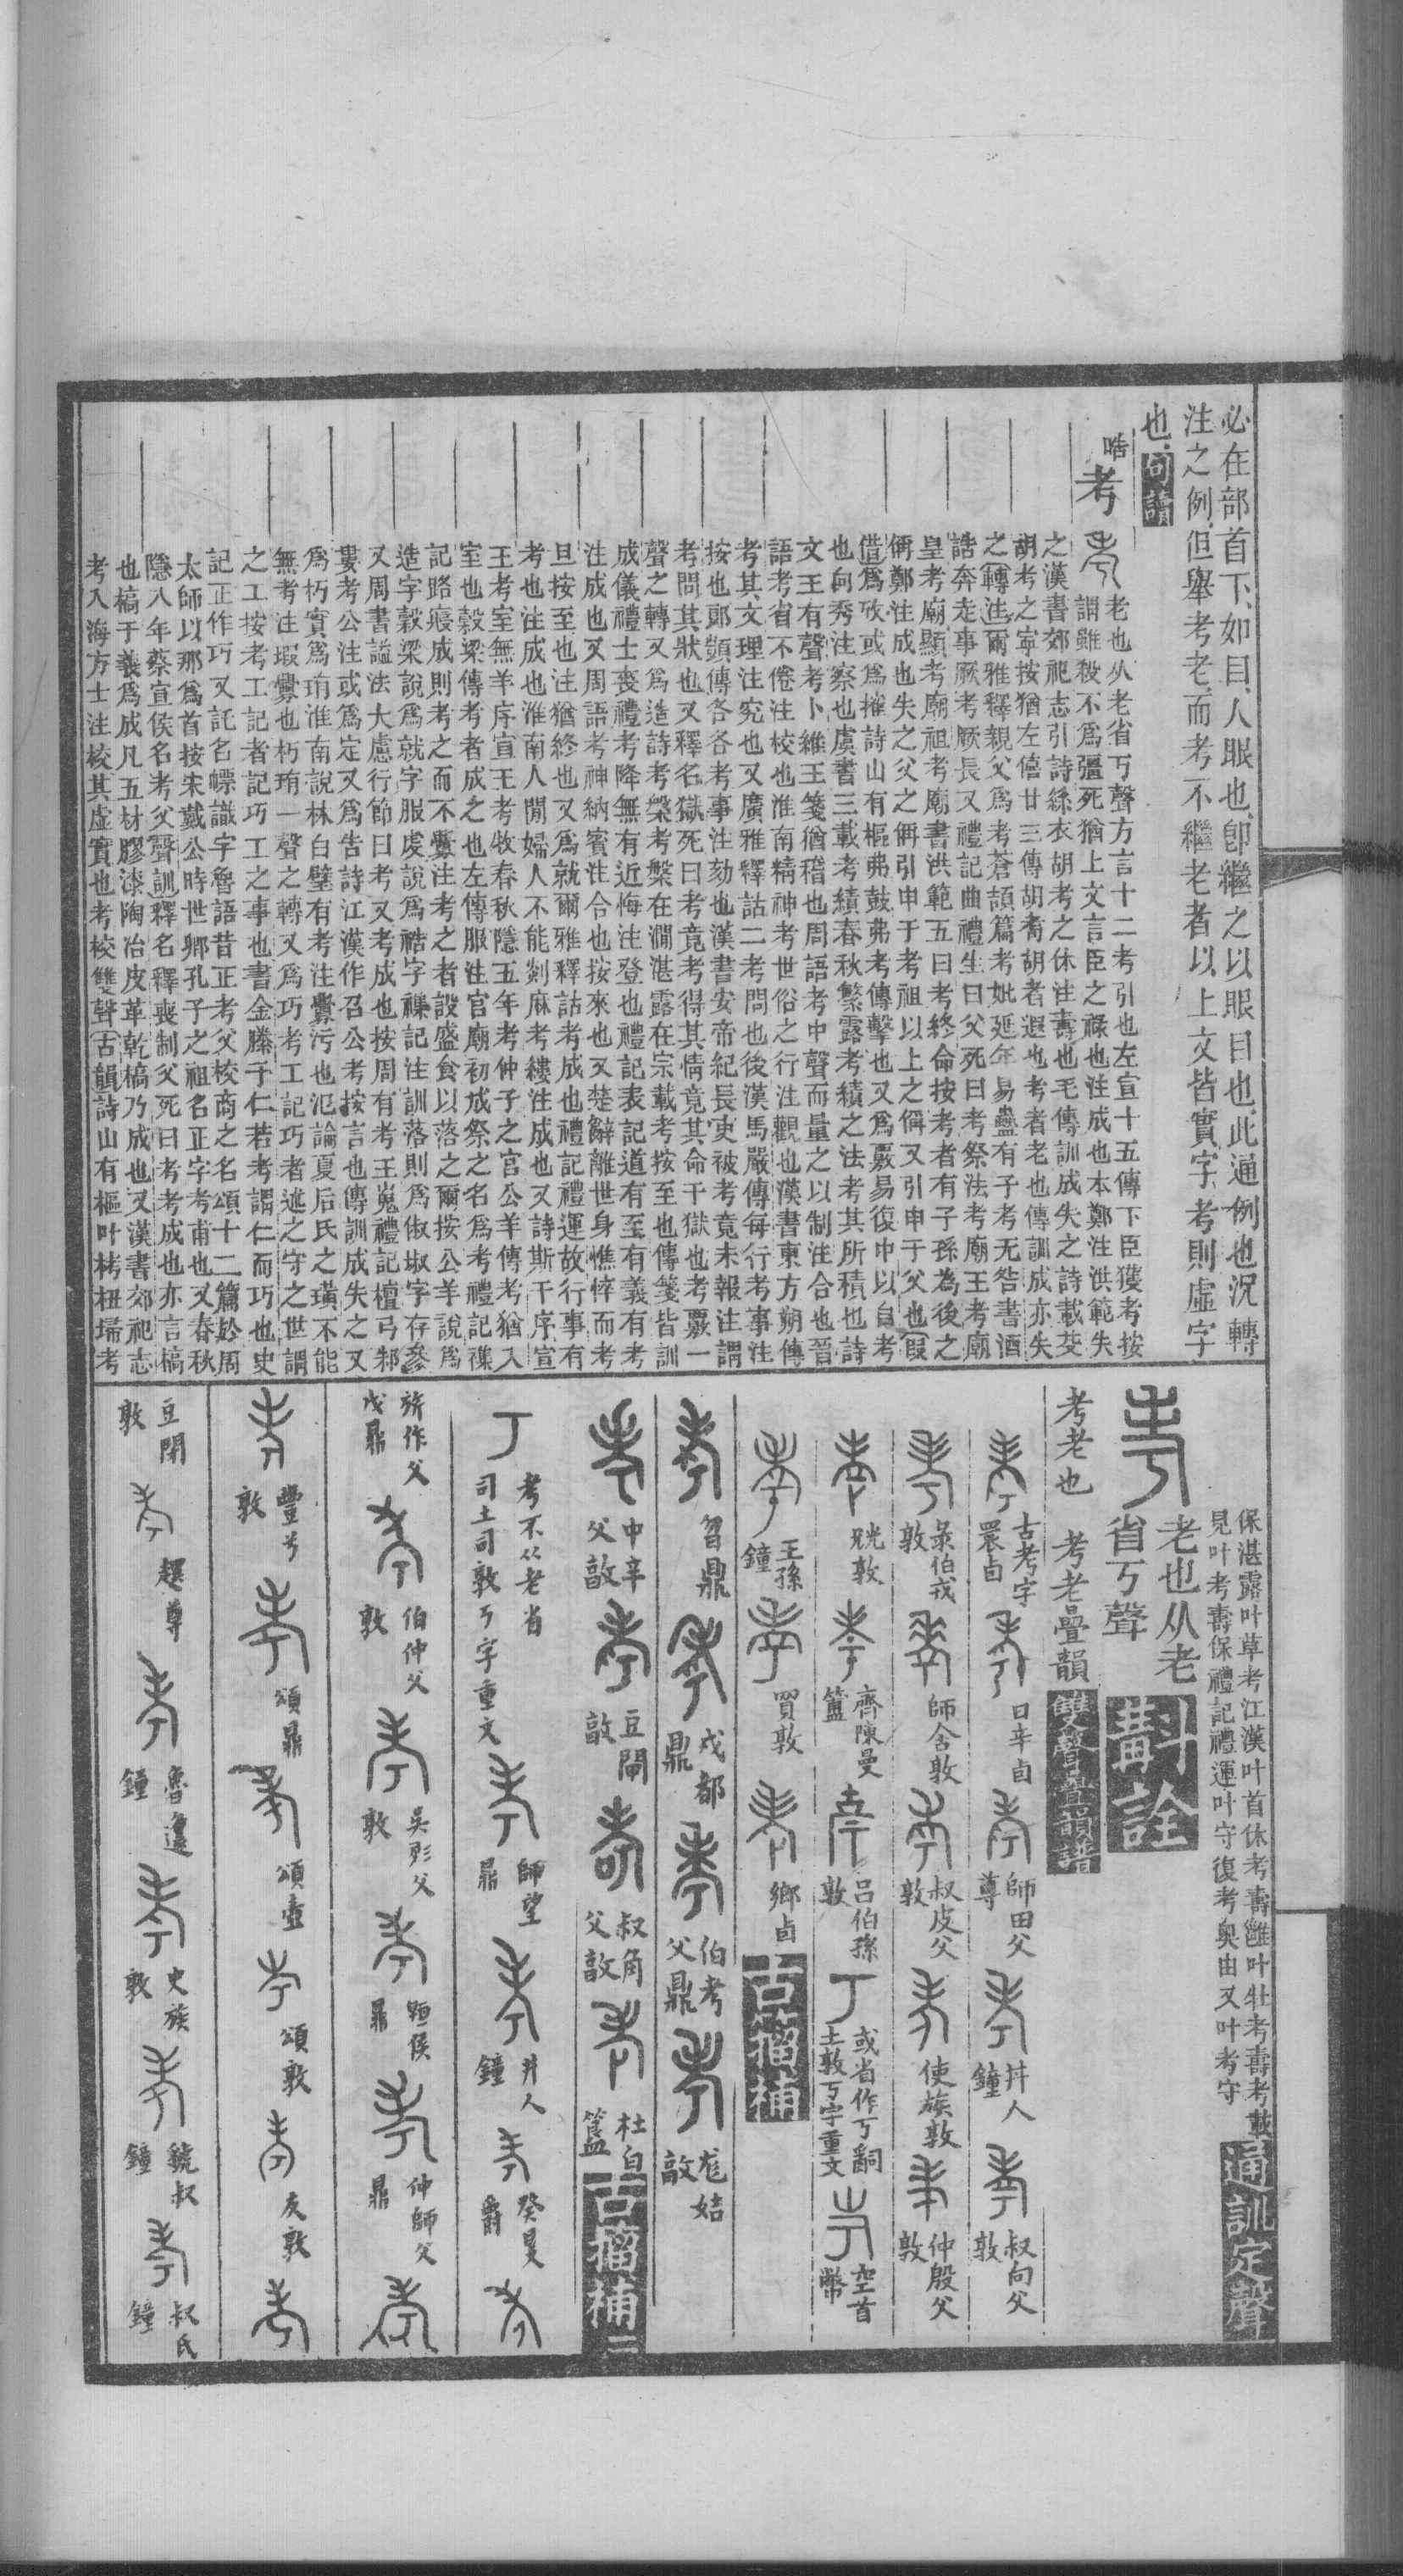 必在部首下、如目、人眼也、卽繼之以眼目也、此通例也、況轉
注之例、但舉考老、而考不繼老者、以上文皆實字、考則虛字
也、句讀
喈 考
老也从老省丂聲方言十二考引也左宣十五傳下臣獲考按
謂雖殺不爲彊死猶上文言臣之祿也注成也本鄭注洪範失
之漢書郊祀志引詩絲衣胡考之休注壽也毛傳訓成失之詩載芟
胡考之寧按猶左僖廿三傳胡耇胡者遐也考者老也傳訓成亦失
之轉注爾雅釋親父爲考蒼頡篇考妣延年易蠱有子考无咎書酒
誥奔走事厥考厥長又禮記曲禮生曰父死曰考祭法考廟王考廟
皇考廟顯考廟祖考廟書洪範五曰考終命按考者有子孫為後之
偁鄭注成也失之父之偁引申于考祖以上之偁又引申于父也叚
借爲攷或爲搉詩山有樞弗鼓弗考傳擊也又爲覈易復中以自考
也向秀注察也虞書三載考績春秋繁露考績之法考其所積也詩
文王有聲考卜維王箋猶稽也周語考中聲而量之以制注合也晉
語考省不倦注校也淮南精神考世俗之行注觀也漢書東方朔傳
考其文理注究也又廣雅釋詁二考問也後漢馬嚴傳每行考事注
按也郎顗傳各各考事注劾也漢書安帝紀長吏被考竟未報注謂
考問其狀也又釋名獄死曰考竟考得其情竟其命于獄也考覈一
聲之轉又爲造詩考槃考槃在澗湛露在宗載考按至也傳箋皆訓
成儀禮士喪禮考降無有近悔注登也禮記表記道有至有義有考
注成也又周語考神納賓注合也按來也又楚辭離世身憔悴而考
旦按至也注猶終也又爲就爾雅釋詁考成也禮記禮運故行事有
考也注成也淮南人閒婦人不能剡麻考縷注成也又詩斯干序宣
王考室無羊序宣王考牧春秋隱五年考仲子之宮公羊傳考猶入
室也穀梁傳考者成之也左傳服注宮廟初成祭之名爲考禮記襍
記路寢成則考之而不釁注考之者設盛食以落之爾按公羊說爲
造字穀梁說爲就字服虔說爲祰字襍記注訓落則爲俶埱字存參
又周書謚法大慮行節曰考又考成也按周有考王嵬禮記檀弓邾
婁考公注或爲定又爲告詩江漢作召公考按言也傳訓成失之又
爲朽實爲珛淮南說林白璧有考注釁污也氾論夏后氏之璜不能
無考注瑕釁也朽珛一聲之轉又爲巧考工記巧者述之守之世謂
之工按考工記者記巧工之事也書金縢予仁若考謂仁而巧也史
記正作巧又託名幖識字魯語昔正考父校商之名頌十二篇於周
太師以那爲首按宋戴公時世卿孔子之祖名正字考甫也又春秋
隱八年蔡宣侯名考父聲訓釋名釋喪制父死曰考考成也亦言槁
也槁于義爲成凡五材膠漆陶冶皮革乾槁乃成也又漢書郊祀志
考入海方士注校其虛實也考校雙聲古韻詩山有樞叶栲杻埽考
保湛露叶草考江漢叶首休考壽雝叶牡考壽考載
見叶考壽保禮記禮運叶守復考奧由又叶考守 通訓定聲
老也从老
省丂聲 斠詮
考老也 考老疊韻 雙聲疊韻譜
古考字 睘卣 日辛卣 師田父尊 井人鐘 叔向父敦
彔伯戎敦 師舍敦 叔皮父敦 使族敦 仲殷父敦
兟敦 齊陳曼簠 呂伯孫敦 丁 或省作丂嗣土敦丂字重文 空首幣
王孫鐘 買敦 鄉卣 古籀補
曶鼎 戍都鼎 伯考父鼎 尨姞敦
中辛父敦 豆閈敦 叔角父敦 杜白簋 古籀補二
丁 考不从老省司土司敦丂字重文 師望鼎 井人鐘 癸旻爵
旂作父戊鼎 伯仲父敦 吳彭父敦 䟒侯鼎 仲師父鼎
豐兮敦 頌鼎 頌壺 頌敦 友敦
豆閉敦 趩尊 魯邍鐘 史族敦 虢叔鐘 叔氏鐘